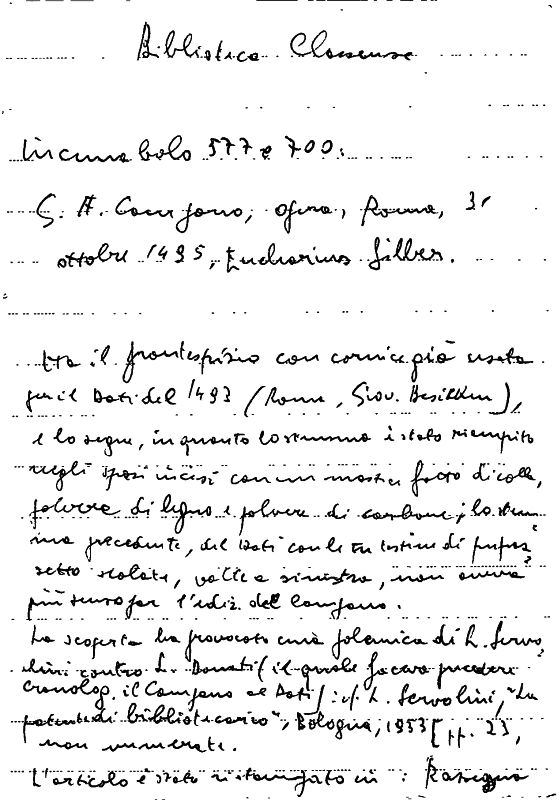 Biblioteca Classense
Incunabolo 577 e 700:
G. A. Campano, Opera, Roma, 31
ottobre 1495, Eucharius Silber.
Ha il frontespizio con cornice già usata
per il Dati del 1493 (Roma, Giov. Besicken),
e lo segue, in quanto lo stemma è stato riempito
negli spazi incisi con un mastice fatto di colla,
polvere di legno e polvere di carbone; lo stem
ma precedente, del Dati con le tre testine di
setto scolate, volte a sinistra, non aveva
più senso per l'ediz. del Campano.
La scoperta ha provocato una polemica di L. Servo
lini contro L. Donati (il quale faceva precedere
cronolog. il Campano al Dati): cf. L. Servolini, "La
patente di bibliotecario", Bologna, 1953 [pp. 23,
non numerate.
L'articolo è stato ristampato in: Rassegna